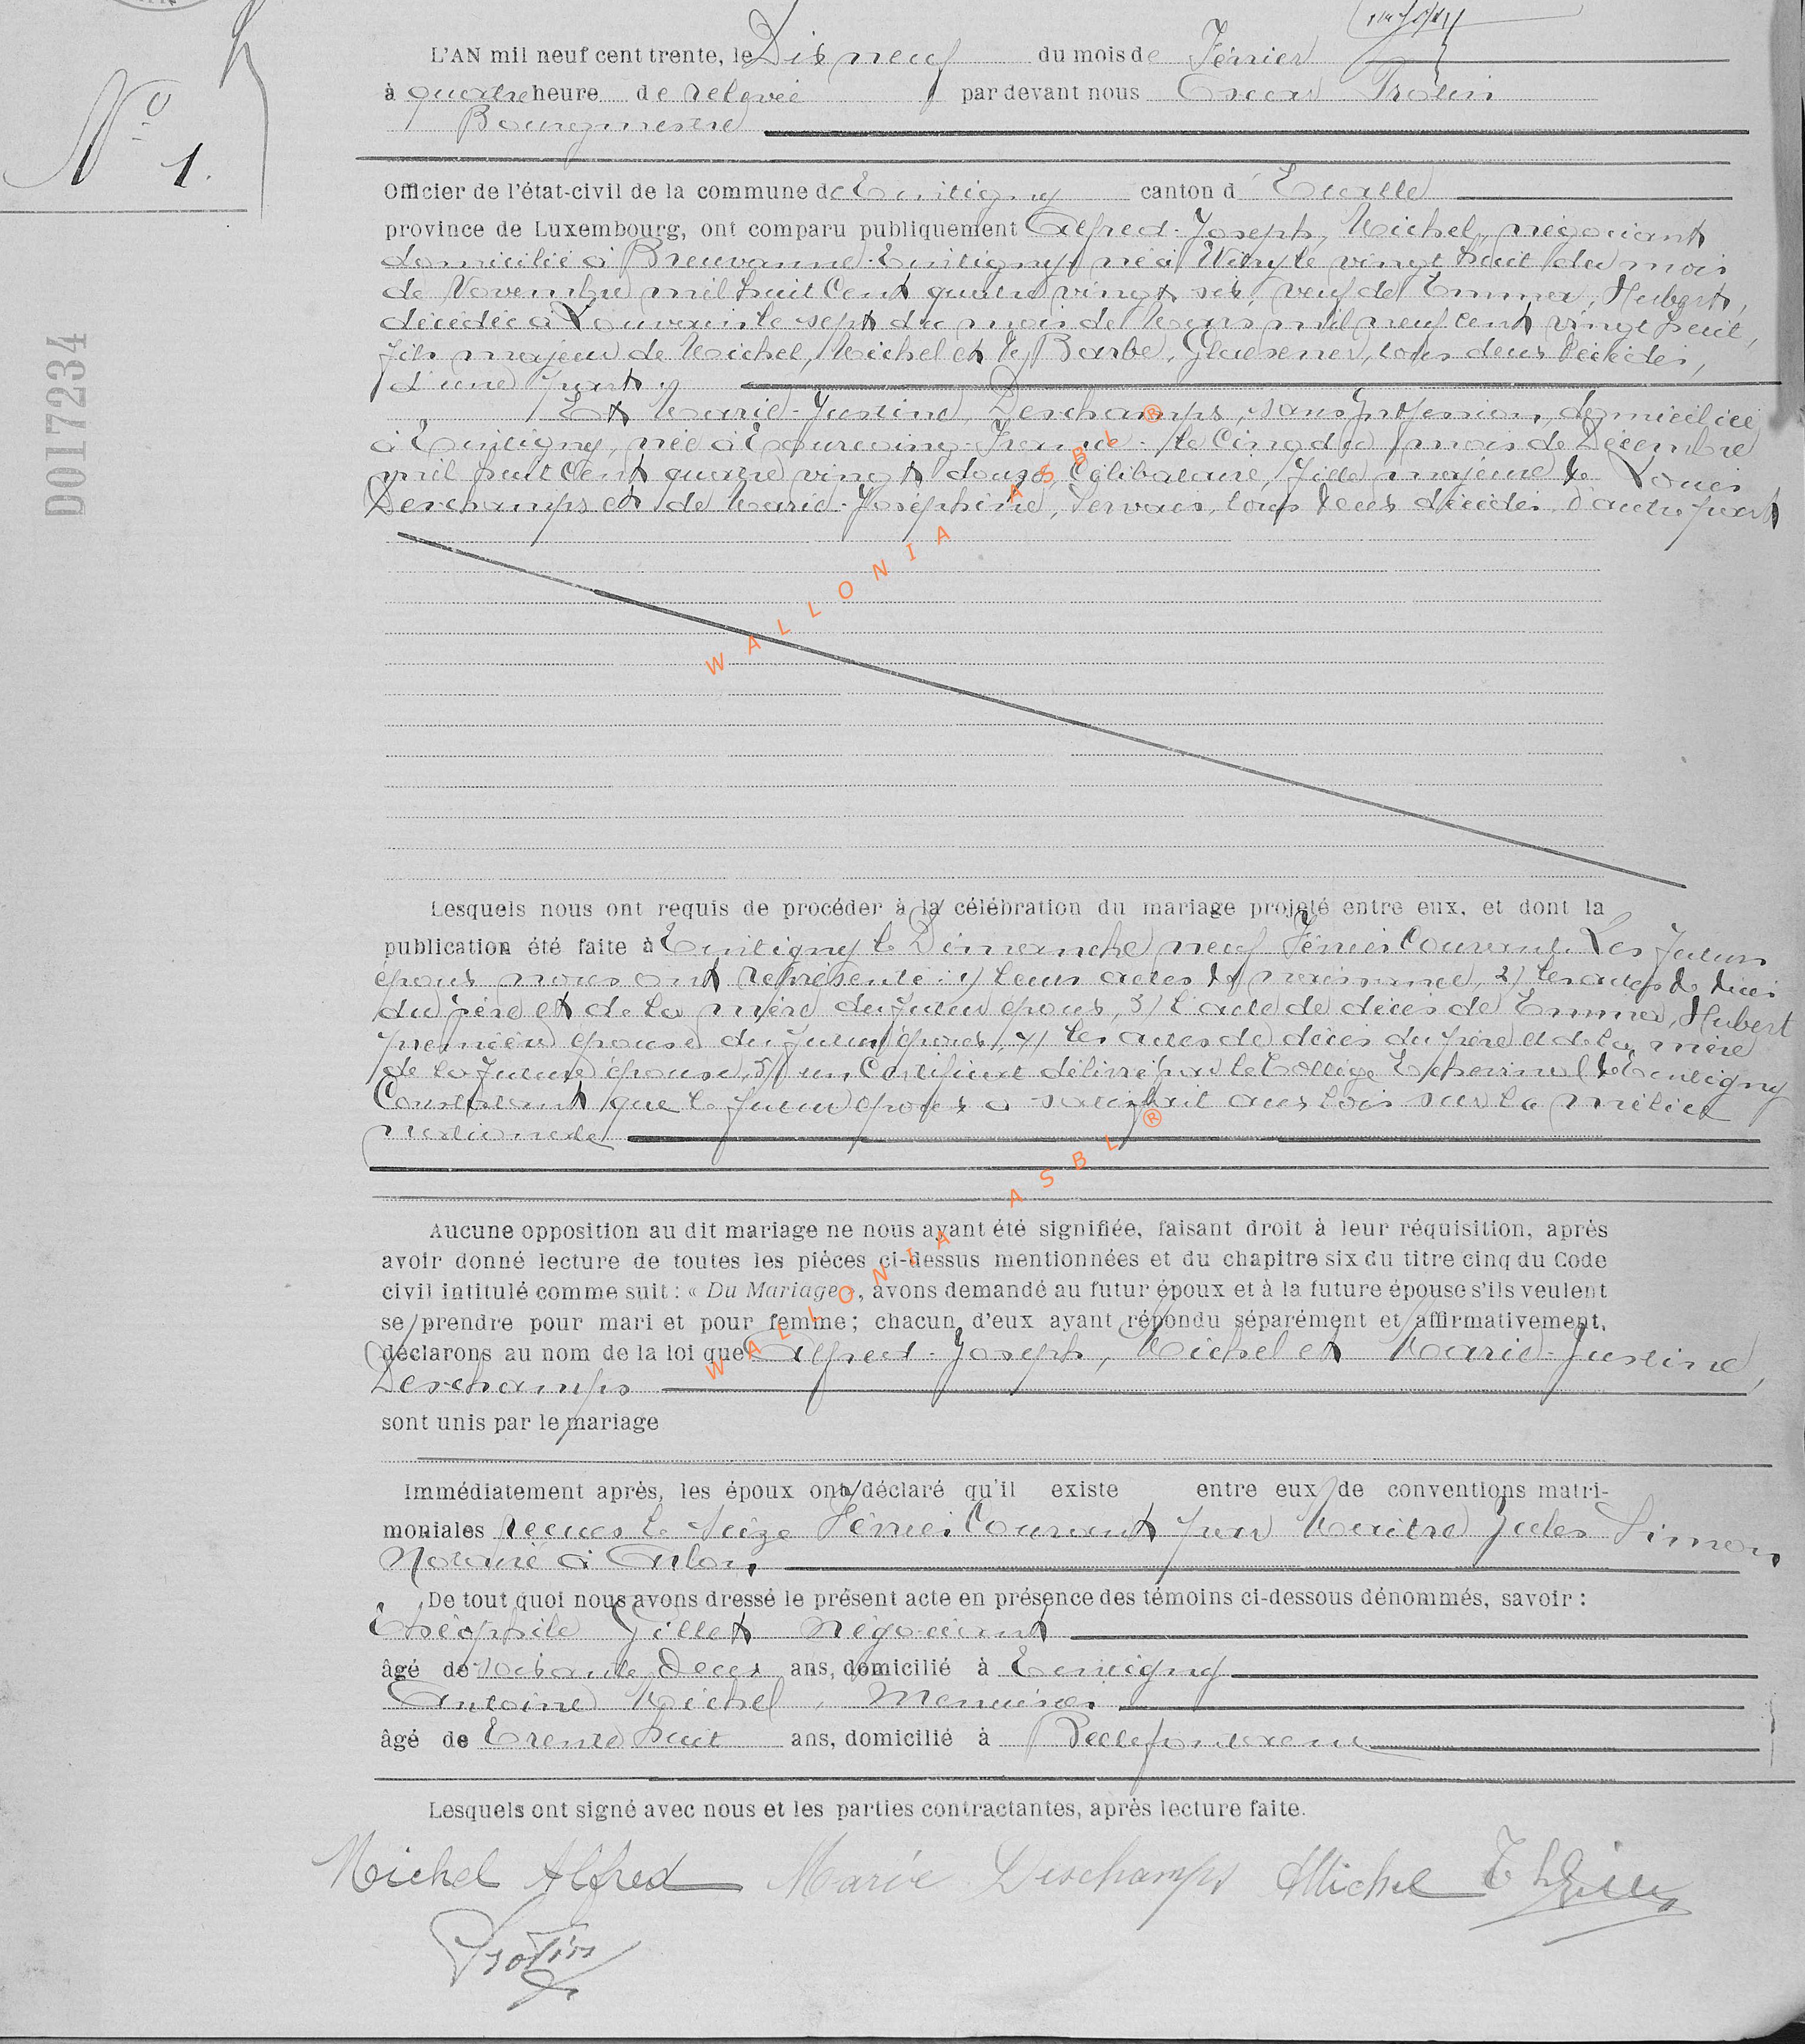 L'AN mil neuf cent trente, le Dix neuf du mois de Février
N° 1.
à quatre heure de relevée par devant nous Oscar Protin
Bourgmestre
Officier de l'état-civil de la commune de Tintigny canton d' Etalle
province de Luxembourg, ont comparu publiquement Alfred-Joseph, Michel, négociant
domicilié à Breuvanne-Tintigny, né à Witry le vingt huit du mois
de Novembre mil huit Cent quatre vingt six, veuf de Emma, Hubert,
décédée à Louvain le sept du mois de Mars mil neuf cent vingt huit,
fils majeur de Michel, Michel et de Barbe, Glaesener, tous deux décédés,
d'une part
Et Marie-Justine, Deschamps, sans profession, domiciliée
à Tintigny, née à Tourcoing-France- le Cinq du mois de Décembre
mil huit Cent quatre vingt douze, Célibataire, fille majeure de Louis
Deschamps et de Marie-Joséphine, Servais, tous deux décédés, d'autre part
D017234
WALLONIA ASBL ®
Lesquels nous ont requis de procéder à la célébration du mariage projeté entre eux, et dont la
publication été faite à Tintigny le Dimanche neuf Février Courant. Les futurs
époux nous ont représenté: 1/ leurs actes de naissance, 2/ les actes de décès
du père et de la mère du futur époux, 3/ l'acte de décès de Emma, Hubert
première épouse du futur époux, 4/ les actes de décès du père et de la mère
de la future épouse, 5/ un Certificat délivré par le Collège Echevinal de Tintigny
Constatant que le futur époux a satisfait aux lois sur la milice
nationale
WALLONIA ASBL ®
Aucune opposition au dit mariage ne nous ayant été signifiée, faisant droit à leur réquisition, après
avoir donné lecture de toutes les pièces ci-dessus mentionnées et du chapitre six du titre cinq du Code
civil intitulé comme suit : « Du Mariage », avons demandé au futur époux et à la future épouse s'ils veulent
se prendre pour mari et pour femme ; chacun d'eux ayant répondu séparément et affirmativement,
déclarons au nom de la loi que Alfred-Joseph, Michel et Marie-Justine,
Deschamps
sont unis par le mariage
Immédiatement après, les époux ont déclaré qu'il existe entre eux de conventions matri-
moniales reçues le seize Février Courant par Maître Jules Simon
Notaire à Arlon,
De tout quoi nous avons dressé le présent acte en présence des témoins ci-dessous dénommés, savoir :
Théophile Gillet Négociant
âgé de soixante Deux ans, domicilié à Tintigny
Antoine Michel, Menuisier
âgé de Trente huit ans, domicilié à Bellefontaine
Lesquels ont signé avec nous et les parties contractantes, après lecture faite.
Michel Alfred Marie Deschamps AMichel Th Gillet
Protin